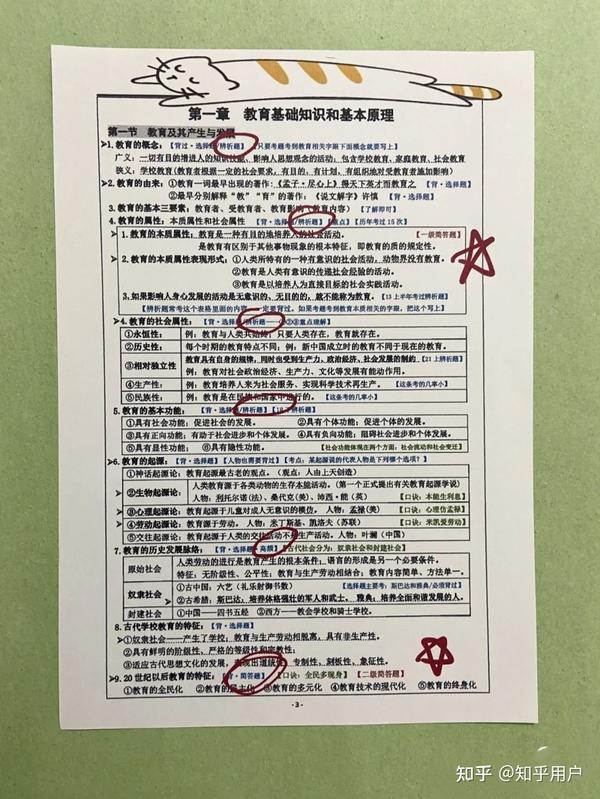 第一章 教育基础知识和基本原理
第一节 教育及其产生与发展
➢1.教育的概念:【背过·选择题/辨析题】【只要考题考到教育相关字眼下面概念就要写上】
广义:一切有目的增进人的知识技能、影响人思想观念的活动;包含学校教育、家庭教育、社会教育
狭义:学校教育(教育者根据一定的社会要求,有目的、有计划、有组织地对受教育者施加影响)
➢2.教育的由来:①教育一词最早出现的著作:《孟子·尽心上》得天下英才而教育之 【背·选择题】
②最早分别解释“教”“育”的著作:《说文解字》许慎 【背·选择题】
3.教育的基本三要素:教育者、受教育者、教育影响(教育内容)【了解即可】
4.教育的属性:本质属性和社会属性 【背·选择题/辨析题】【重点】【历年考过15次】
1.教育的本质属性:教育是一种有目的地培养人的社会活动。 【一级简答题】
是教育有区别于其他事物现象的根本特征,即教育的质的规定性。
2.教育的本质属性表现形式:①人类所特有的一种有意识的社会活动,动物界没有教育。
②教育是人类有意识的传递社会经验的活动。
③教育是以培养人为直接目标的社会实践活动。
3.如果影响人身心发展的活动是无意识的、无目的的,就不能称为教育。【13上半年考过辨析题】
➢4.教育的社会属性:【背·选择题/辨析题
①永恒性: 例:教育与人类共始终;只要人类存在,教育就存在。
②历史性: 每个时期的教育特点不同;例:新中国成立时的教育不同于现在的教育。
③相对独立性 教育具有自身的规律,同时也受到生产力、政治经济、社会发展的制约【21上辨析题】
例:教育对社会政治经济、生产力、文化等发展有能动作用。
④生产性: 例:教育培养人来为社会服务、实现科学技术再生产。 【这条考的几率小】
⑤民族性: 例:教育是在民族和国家中进行的。【这条考的几率小】
5.教育的基本功能:【背·选择题/辨析题】
①具有社会功能:促进社会的发展。 ②具有个体功能:促进个体的发展。
③具有正向功能:有助于社会进步和个体发展。④具有负向功能:阻碍社会进步和个体发展。
⑤具有显性功能; ⑥具有隐性功能。 【社会功能体现在两个方面:社会流动和社会变迁】
➢6.教育的起源:【背·选择题】【人物也需要背过】【考点:某起源说的代表人物是下列哪个选项?】
①神话起源论:教育起源最古老的观点。(观点:人由上天创造)
②生物起源论: 人类教育起源于各类动物的生存本能活动。(第一个正式提出有关教育起源学说)
人物:利托尔诺(法)、桑代克(美)、沛西·能(英) 【口诀:本能生利息】
③心理起源论:教育起源于儿童对成人无意识的模仿。 人物:孟禄(美) 【口诀:心理仿孟禄】
④劳动起源论:教育源于劳动。 人物:米丁斯基、凯洛夫(苏联) 【口诀:米凯爱劳动】
⑤交往起源论:教育起源于人类的交往活动不是生产活动。人物:叶澜(中国)
7.教育的历史发展脉络:【背·选择题 高频】【古代社会分为:奴隶社会和封建社会】
原始社会 人类劳动的进行是教育产生的根本条件;语言的形成是另一个必要条件。
特征:无阶级性、公平性;教育与生产劳动相结合;教育内容简单、方法单一。
奴隶社会 ①古中国:六艺(礼乐射御书数) 【选择题主要考:斯巴达和雅典/必须背过】
②古希腊:斯巴达:培养体格强壮的军人和武士。 雅典:培养全面和谐发展的人。
封建社会 ①中国——四书五经 ②西方——教会学校和骑士学校。
8.古代学校教育的特征:【背·选择题】
➢①奴隶社会——产生了学校;教育与生产劳动相脱离,具有非生产性。
②具有鲜明的阶级性、严格的等级性和宗教性;
③适应古代思想文化的发展,表现出道统性、专制性、刻板性、象征性。
➢9.20世纪以后教育的特征:【背·简答题】【口诀:全民多现身】 【二级简答题】
①教育的全民化 ②教育的民主化 ③教育的多元化 ④教育技术的现代化 ⑤教育的终身化
- 3 -
知乎 @知乎用户